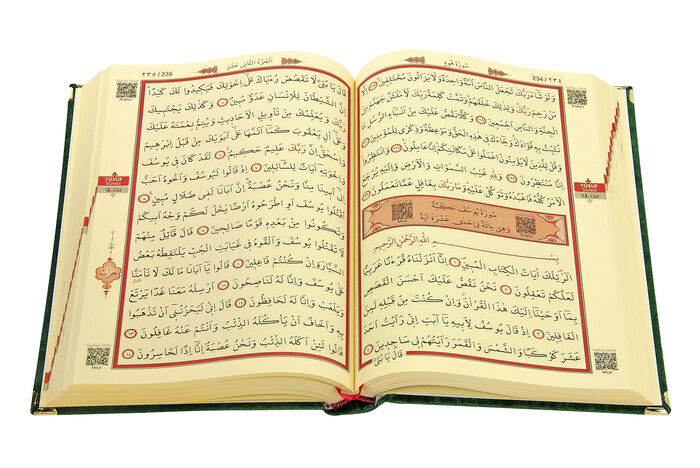 سُورَةُ هُودٍ
234/٢٣٤
وَلَوْ شَاءَ رَبُّكَ لَجَعَلَ النَّاسَ اُمَّةً وَاحِدَةً وَلَا يَزَالُونَ مُخْتَلِفِينَ
اِلَّا مَنْ رَحِمَ رَبُّكَ وَلِذٰلِكَ خَلَقَهُمْ وَتَمَّتْ كَلِمَةُ رَبِّكَ لَاَمْلَـَٔنَّ جَهَنَّمَ مِنَ
الْجِنَّةِ وَالنَّاسِ اَجْمَعِينَ وَكُلًّا نَقُصُّ عَلَيْكَ مِنْ اَنْبَاءِ الرُّسُلِ مَا
نُثَبِّتُ بِهِ فُؤَادَكَ وَجَاءَكَ فِي هٰذِهِ الْحَقُّ وَمَوْعِظَةٌ وَذِكْرٰى لِلْمُؤْمِنِينَ
وَقُلْ لِلَّذِينَ لَا يُؤْمِنُونَ اعْمَلُوا عَلٰى مَكَانَتِكُمْ اِنَّا عَامِلُونَ وَانْتَظِرُوا
اِنَّا مُنْتَظِرُونَ وَلِلّٰهِ غَيْبُ السَّمٰوَاتِ وَالْاَرْضِ وَاِلَيْهِ يُرْجَعُ
الْاَمْرُ كُلُّهُ فَاعْبُدْهُ وَتَوَكَّلْ عَلَيْهِ وَمَا رَبُّكَ بِغَافِلٍ عَمَّا تَعْمَلُونَ
سُورَةُ يُوسُفَ مَكِّيَّةٌ
وَهِيَ مِائَةٌ وَاِحْدٰى عَشْرَةَ اٰيَةً
بِسْمِ اللّٰهِ الرَّحْمٰنِ الرَّحِيمِ
الٓرٰ تِلْكَ اٰيَاتُ الْكِتَابِ الْمُبِينِ ١ اِنَّا اَنْزَلْنَاهُ قُرْاٰنًا عَرَبِيًّا
لَعَلَّكُمْ تَعْقِلُونَ ٢ نَحْنُ نَقُصُّ عَلَيْكَ اَحْسَنَ الْقَصَصِ
بِمَا اَوْحَيْنَا اِلَيْكَ هٰذَا الْقُرْاٰنَ وَاِنْ كُنْتَ مِنْ قَبْلِهِ لَمِنَ
الْغَافِلِينَ ٣ اِذْ قَالَ يُوسُفُ لِاَبِيهِ يَا اَبَتِ اِنِّي رَاَيْتُ اَحَدَ
عَشَرَ كَوْكَبًا وَالشَّمْسَ وَالْقَمَرَ رَاَيْتُهُمْ لِي سَاجِدِينَ ٤
قَالَ يَا بُنَيَّ
YÛSUF
Sûresi
12. Cüz
Meal
اَلْجُزْءُ الثَّانِي عَشَرَ
٢٣٥/235
قَالَ يَا بُنَيَّ لَا تَقْصُصْ رُءْيَاكَ عَلٰى اِخْوَتِكَ فَيَكِيدُوا لَكَ كَيْدًا
اِنَّ الشَّيْطَانَ لِلْاِنْسَانِ عَدُوٌّ مُبِينٌ ٥ وَكَذٰلِكَ يَجْتَبِيكَ
رَبُّكَ وَيُعَلِّمُكَ مِنْ تَأْوِيلِ الْاَحَادِيثِ وَيُتِمُّ نِعْمَتَهُ عَلَيْكَ
وَعَلٰى اٰلِ يَعْقُوبَ كَمَا اَتَمَّهَا عَلٰى اَبَوَيْكَ مِنْ قَبْلُ اِبْرٰهِيمَ
وَاِسْحٰقَ اِنَّ رَبَّكَ عَلِيمٌ حَكِيمٌ ٦ لَقَدْ كَانَ فِي يُوسُفَ
وَاِخْوَتِهِ اٰيَاتٌ لِلسَّائِلِينَ ٧ اِذْ قَالُوا لَيُوسُفُ وَاَخُوهُ اَحَبُّ
اِلٰى اَبِينَا مِنَّا وَنَحْنُ عُصْبَةٌ اِنَّ اَبَانَا لَفِي ضَلَالٍ مُبِينٍ ٨
اُقْتُلُوا يُوسُفَ اَوِ اطْرَحُوهُ اَرْضًا يَخْلُ لَكُمْ وَجْهُ اَبِيكُمْ
وَتَكُونُوا مِنْ بَعْدِهِ قَوْمًا صَالِحِينَ ٩ قَالَ قَائِلٌ مِنْهُمْ
لَا تَقْتُلُوا يُوسُفَ وَاَلْقُوهُ فِي غَيَابَتِ الْجُبِّ يَلْتَقِطْهُ بَعْضُ
السَّيَّارَةِ اِنْ كُنْتُمْ فَاعِلِينَ ١٠ قَالُوا يَا اَبَانَا مَا لَكَ لَا تَأْمَنَّا
عَلٰى يُوسُفَ وَاِنَّا لَهُ لَنَاصِحُونَ ١١ اَرْسِلْهُ مَعَنَا غَدًا يَرْتَعْ
وَيَلْعَبْ وَاِنَّا لَهُ لَحَافِظُونَ ١٢ قَالَ اِنِّي لَيَحْزُنُنِي اَنْ تَذْهَبُوا
بِهِ وَاَخَافُ اَنْ يَأْكُلَهُ الذِّئْبُ وَاَنْتُمْ عَنْهُ غَافِلُونَ ١٣
قَالُوا لَئِنْ اَكَلَهُ الذِّئْبُ وَنَحْنُ عُصْبَةٌ اِنَّا اِذًا لَخَاسِرُونَ ١٤
YÛSUF
Sûresi
12. Cüz
Meal